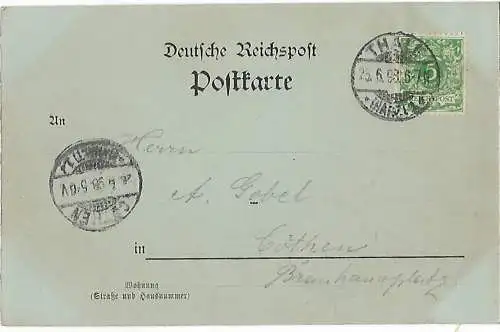 Deutsche Reichspost
Postkarte
THALE
25.6.98.6-7N.
*(HARZ)*
REICHSPOST
An
Herrn
A. Gobel
in Cöthen
Brauhausplatz
CÖTHEN
Wohnung
(Straße und Hausnummer)